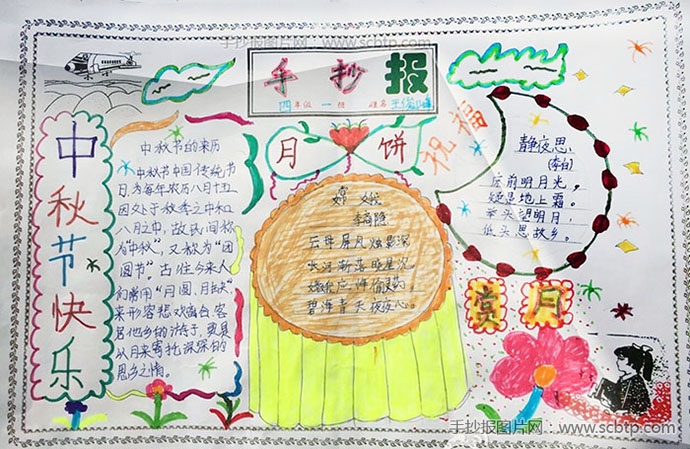 手抄报图片网：www.scbtp.com
手抄报
四年级一班 姓名
中秋节快乐
中秋节的来历
中秋节中国传统节
日,为每年农历八月十五
因处于秋季之中和
八月之中,故民间称
为"中秋",又称为"团
圆节"古往今来人
们常用"月圆、月缺"
来形容悲欢离合,客
居他乡的
以月来寄托深深的
思乡之情。
月饼
嫦娥
李商隐
云母屏风烛影深
长河渐落晓星沉
嫦娥应悔偷灵药
碧海青天夜夜心。
祝福
静夜思
(李白)
床前明月光,
疑是地上霜。
举头望明月,
低头思故乡。
赏月
手抄报图片网：www.scbtp.com